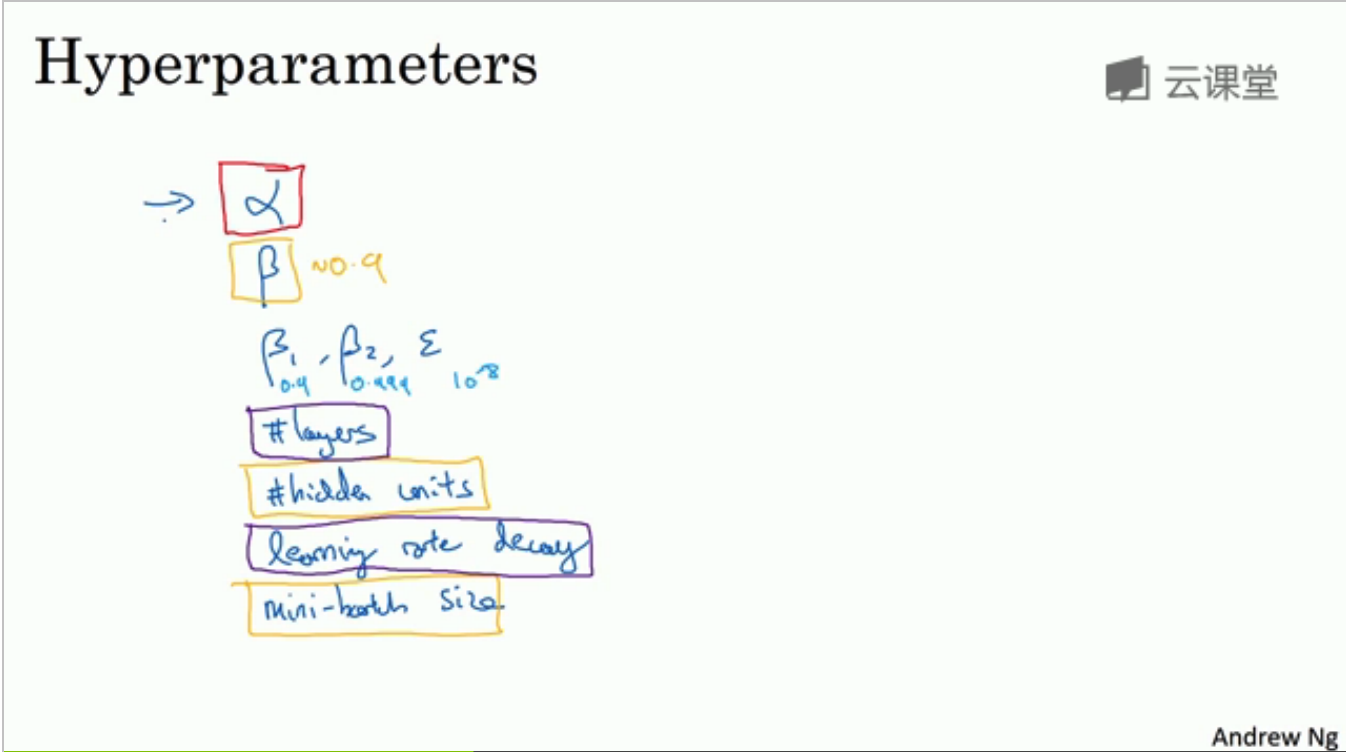 Hyperparameters
云课堂
α
β ~0.9
β₁, β₂, ε
0.9 0.999 10⁻⁸
#layers
#hidden units
learning rate decay
mini-batch size
Andrew Ng